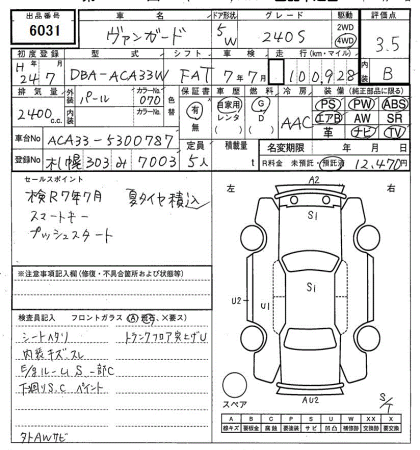 出品番号 車名 ドア形状 グレード 駆動 評価点
6031 ヴァンガード 5W 240S 2WD 4WD 3.5
初度登録 型式 シフト 車検 走行(km・マイル) 内装
H24.7 DBA-ACA33W FAT 7年7月 100,928 B
排気量 外装 パール カラーNo. 070 色替 保証書 車歴 燃料 冷房 装備(純正部品に限る)
2400 c.c. 内装 カラーNo. 有 無 自家用 レンタ G D AAC PS PW ABS
エアB AW SR
革 ナビ TV
車台No ACA33-5300787 定員 積載量 名変期限 年 月 日
登録No 札幌303み7003 5人 t R料金 未預託 預託済 12,470円
セールスポイント
検R7年7月 夏タイヤ積込
スマートキー
プッシュスタート
※注意事項記入欄(修復・不具合箇所および状態等)
検査員記入 フロントガラス(A)飛石、×要ス)
シートヘタリ トランクフロア突上げU
内装キズ スレ
E/gルームS一部C
下廻りS.C ペイント
タトAWサビ
左 右
A2
S1
S1
U2 U1
AU2
スペア
S/T
A B C P S U W X XX
線キズ 要板金 腐蝕 要塗装 サビ 凹凸 補修跡 要交換 交換済